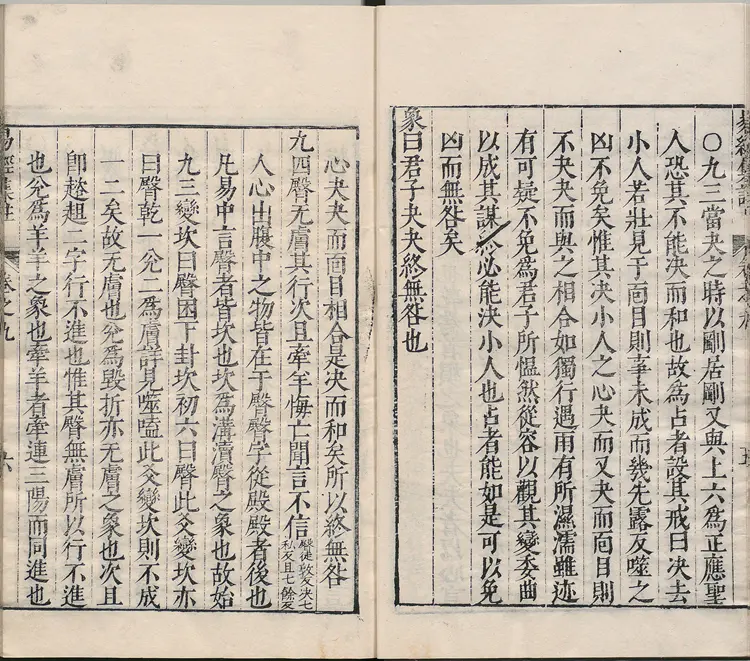 〇九三當夬之時以剛居剛又與上六為正應聖
人恐其不能決而和也故為占者設其戒曰決去
小人若壯見于面目則事未成而幾先露反噬之
凶不免矣惟其決小人之心夬而又夬而面目則
不夬夬而與之相合如獨行遇雨有所濕濡雖迹
有可疑不免為君子所慍然從容以觀其變委曲
以成其謀必能決小人也占者能如是可以免
凶而無咎矣
象曰君子夬夬終無咎也
心夬夬而面目相合是決而和矣所以終無咎
九四臀无膚其行次且牽羊悔亡聞言不信
人心出腹中之物皆在于臀臀字從殿殿者後也
凡易中言臀者皆坎也坎為溝瀆臀之象也故姤
九三變坎曰臀困下卦坎初六曰臀此爻變坎亦
曰臀乾一兌二為膚詳見噬嗑此爻變坎則不成
一二矣故无膚也兌為毀折亦无膚之象也次且
即趑趄二字行不進也惟其臀無膚所以行不進
也兌為羊羊之象也牽羊者牽連三陽而同進也
易經集註
卷之九
六